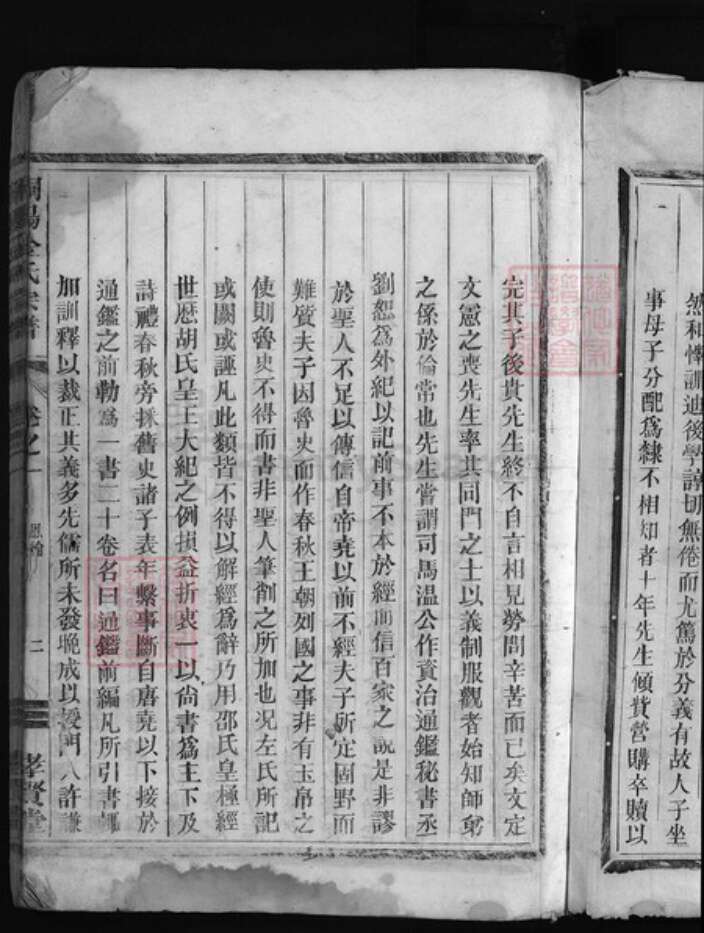 然和懌訓迪後學諄切無倦而尤篤於分義有故人子坐
事母子分配爲隸不相知者十年先生傾貲營購卒贖以
完其子後貴先生終不自言相見勞問辛苦而已矣文定
文憲之喪先生率其同門之士以義制服觀者始知師弟
之係於倫常也先生嘗謂司馬溫公作資治通鑑秘書丞
劉恕爲外紀以記前事不本於經而信百家之說是非謬
於聖人不足以傳信自帝堯以前不經夫子所定固野而
難質夫子因魯史而作春秋王朝列國之事非有玉帛之
使則魯史不得而書非聖人筆削之所加也況左氏所記
或闕或誣凡此類皆不得以解經爲辭乃用邵氏皇極經
世歷胡氏皇王大紀之例損益折衷一以尙書爲主下及
詩禮春秋旁採舊史諸子表年繫事斷自唐堯以下接於
通鑑之前勒爲一書二十卷名曰通鑑前編凡所引書輒
加訓釋以裁正其義多先儒所未發晚成以授門人許謙
桐陽金氏宗譜
卷之一
恩綸
二
孝賢堂